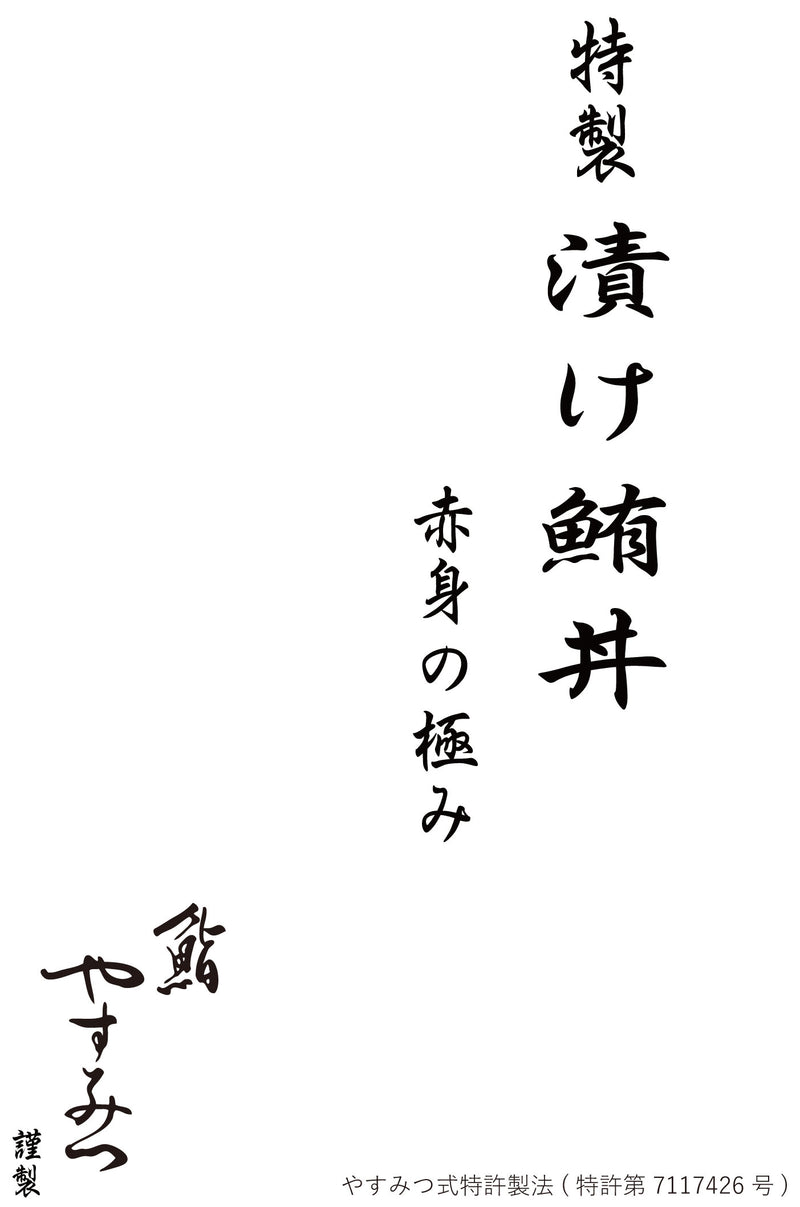 特製 漬け鮪丼
赤身の極み
鮨
やすみつ
謹製
やすみつ式特許製法 ( 特許第 7117426 号 )